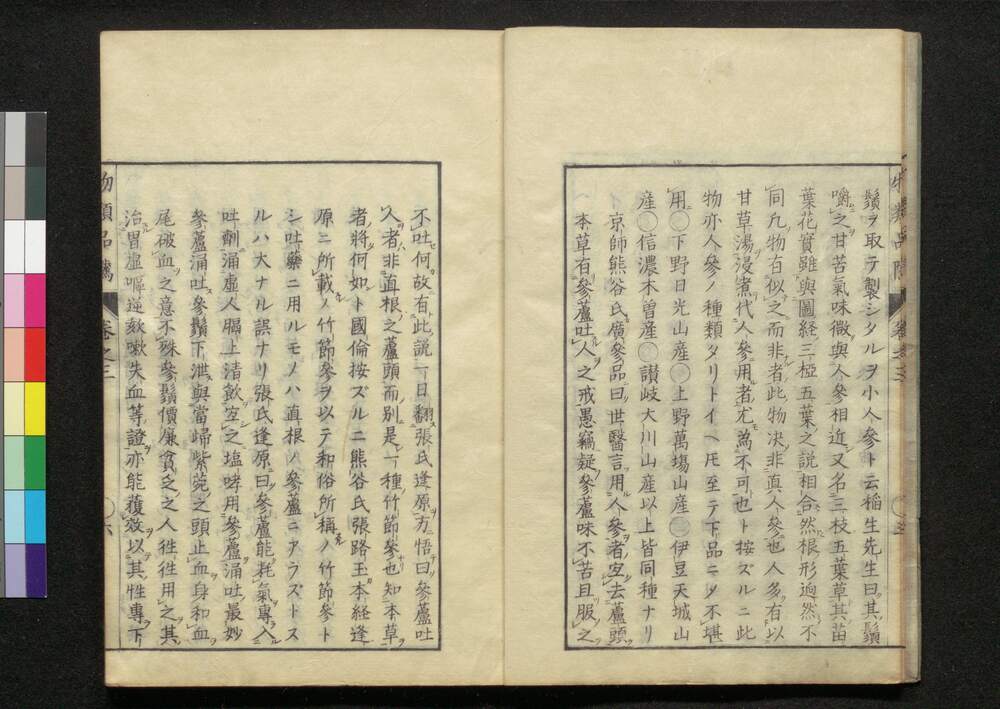 鬚ヲ取テ製シタルヲ小人參ト云稻生先生曰其鬚
嚼之甘苦氣味微與人參相近又名三枝五葉草其苗
葉花實雖與圖經三椏五葉之説相合然根形迥然不
同凡物有似之而非者此物决非真人參也人多有以
甘草湯浸煮代人參用者尤為不可也ト按ズルニ此
物亦人參ノ種類タリトイヘ𪜈至テ下品ニタ不堪
用〇下野日光山産〇上野萬塲山産〇伊豆天城山
産〇信濃木曽産〇讃岐大川山産以上皆同種ナリ
京師熊谷氏廣參品曰世醫言用人參者宜去蘆頭
本草有參蘆吐人之戒愚竊疑參蘆味不苦且服之
不吐何故有此説一日翻張氏逢原方悟曰參蘆吐
人者非直根之蘆頭而別是一種竹節參也知本草
者將何如ト國倫按ズルニ熊谷氏張路玉本經逢
原ニ所載ノ竹節參ヲ以テ和俗所稱ノ竹節參ト
シ吐藥ニ用ルモノハ直根ノ參蘆ニアラズトス
ルハ大ナル誤ナリ張氏逢原曰參蘆能耗氣專入
吐劑涌虛人膈上清飲宜之塩哮用參蘆涌吐最妙
參蘆涌吐參鬚下泄與當歸紫菀之頭止血身和血
尾破血之意不殊參鬚價廉貧乏之人徃徃用之其
治胃虛嘔逆欬嗽失血等證亦能獲效以其性專下
物類品隲 卷之三 〇六